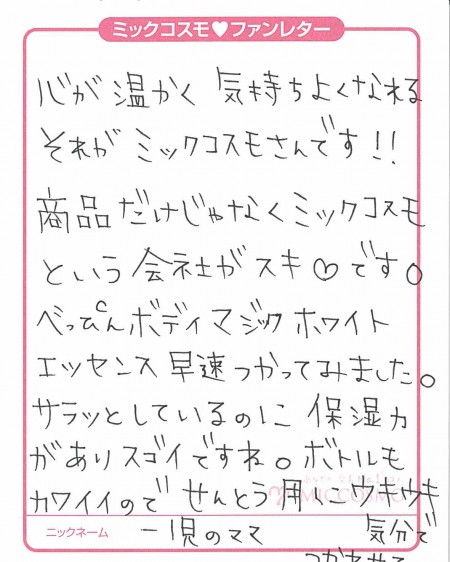 ミックコスモ♥ファンレター
心が温かく 気持ちよくなれる
それが ミックコスモさんです!!
商品だけじゃなくミックコスモ
という 会社がスキ♡です。
べっぴんボディマジックホワイト
エッセンス早速つかってみました。
サラッとしているのに 保湿力
がありスゴイですね。ボトルも
カワイイので せんとう用にウキウキ
ニックネーム 一児のママ 気分で